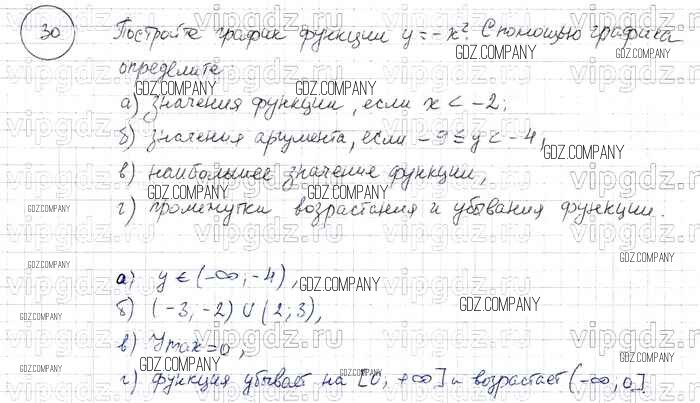 30 Постройте график функции y = -x². С помощью графика
определите
а) значения функции, если x < -2;
б) значения аргумента, если -9 ≤ y < -4,
в) наибольшее значение функции,
г) промежутки возрастания и убывания функции.
а) y ∈ (-∞; -4),
б) (-3, -2) ∪ (2; 3),
в) Ymax = 0,
г) функция убывает на [0; +∞] и возрастает (-∞, 0]
GDZ.COMPANY
vipgdz.ru